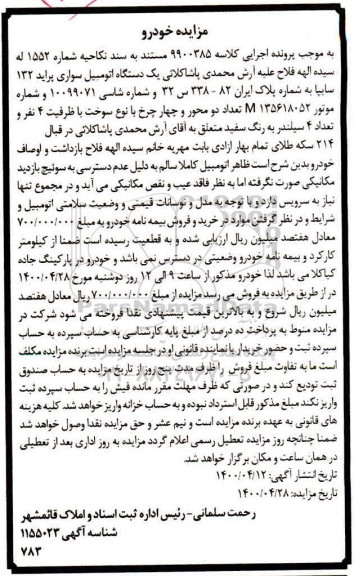 مزایده خودرو
به موجب پرونده اجرایی کلاسه ۹۹۰۰۳۸۵ مستند به سند نکاحیه شماره ۱۵۵۲ له
سیده الهه فلاح علیه آرش محمدی پاشاکلائی یک دستگاه اتومبیل سواری پراید ۱۳۲
سایپا به شماره پلاک ایران ۸۲ - ۳۳۸ س ۳۲ و شماره شاسی ۱۰۰۹۹۰۷۱ و شماره
موتور M ۱۳۵۶۱۸۰۵۲ تعداد دو محور و چهار چرخ با نوع سوخت با ظرفیت ۴ نفر و
تعداد ۴ سیلندر به رنگ سفید متعلق به آقای آرش محمدی پاشاکلائی در قبال
۲۱۴ سکه طلای تمام بهار آزادی بابت مهریه خانم سیده الهه فلاح بازداشت و اوصاف
خودرو بدین شرح است ظاهر اتومبیل کاملا سالم به دلیل عدم دسترسی به سوئیچ بازدید
مکانیکی صورت نگرفته اما به نظر فاقد عیب و نقص مکانیکی می آید و در مجموع تنها
نیاز به سرویس دارد و با توجه به مدل و نوسانات قیمتی و وضعیت سلامتی اتومبیل و
شرایط و در نظر گرفتن موارد در خرید و فروش بیمه نامه خودرو به مبلغ ۷۰۰/۰۰۰/۰۰۰
معادل هفتصد میلیون ریال ارزیابی شده و به قطعیت رسیده است ضمنا از کیلومتر
کارکرد و بیمه نامه خودرو وضعیتی در دسترس نمی باشد و خودرو در پارکینگ جاده
کیاکلا می باشد لذا خودرو مذکور از ساعت ۹ الی ۱۲ روز دوشنبه مورخ ۱۴۰۰/۰۴/۲۸
در از طریق مزایده به فروش می رسد مزایده از مبلغ ۷۰۰/۰۰۰/۰۰۰ ریال معادل هفتصد
میلیون ریال شروع و به بالاترین قیمت پیشنهادی نقدا فروخته می شود شرکت در
مزایده منوط به پرداخت ده درصد از مبلغ پایه کارشناسی به حساب سپرده به حساب
سپرده ثبت و حضور خریدار یا نماینده قانونی او در جلسه مزایده است برنده مزایده مکلف
است ما به تفاوت مبلغ فروش را ظرف مدت پنج روز از تاریخ مزایده به حساب صندوق
ثبت تودیع کند و در صورتی که ظرف مهلت مقرر مانده فیش را به حساب سپرده ثبت
واریز نکند مبلغ مذکور قابل استرداد نبوده و به حساب خزانه واریز خواهد شد. کلیه هزینه
های قانونی به عهده برنده مزایده است و نیم عشر و حق مزایده نقدا وصول خواهد شد
ضمنا چنانچه روز مزایده تعطیل رسمی اعلام گردد مزایده به روز اداری بعد از تعطیلی
در همان ساعت و مکان برگزار خواهد شد.
تاریخ انتشار آگهی: ۱۴۰۰/۰۴/۱۲
تاریخ مزایده: ۱۴۰۰/۰۴/۲۸
رحمت سلمانی - رئیس اداره ثبت اسناد و املاک قائمشهر
شناسه آگهی ۱۱۵۵۰۲۳
۷۸۳